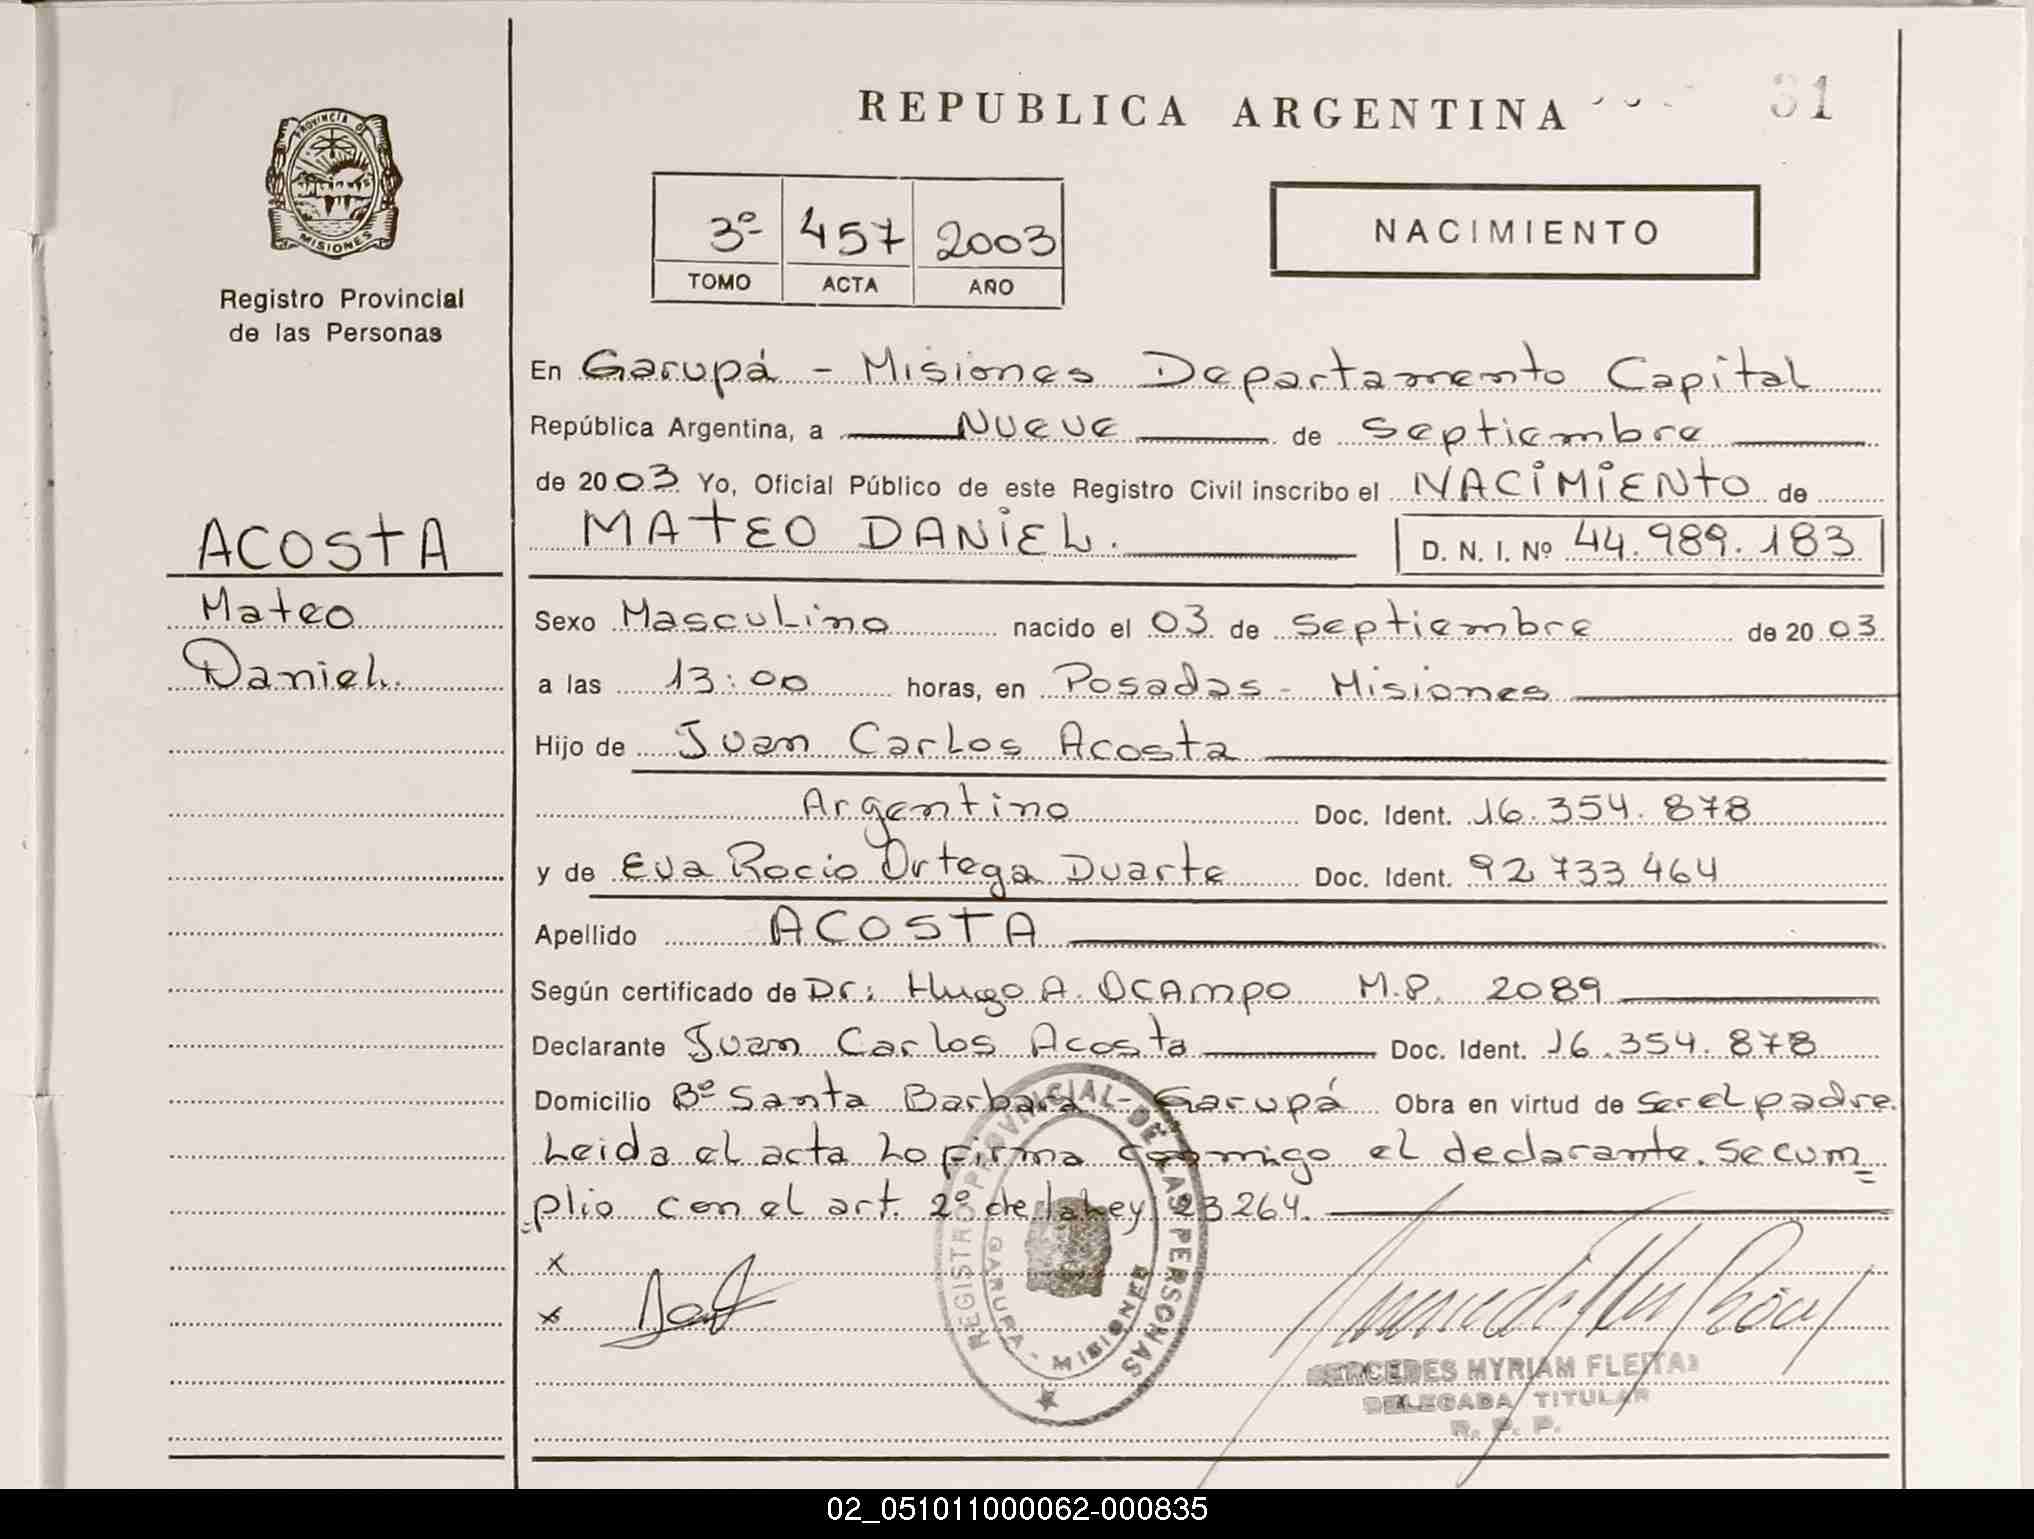 REPUBLICA ARGENTINA
31
PROVINCIA DE
MISIONES
Registro Provincial
de las Personas
3º 457 2003
TOMO ACTA AÑO
NACIMIENTO
En Garupá - Misiones Departamento Capital
República Argentina, a Nueve de Septiembre
de 2003 Yo, Oficial Público de este Registro Civil inscribo el NACIMIENTO de
MATEO DANIEL. D. N. I. Nº 44.989.183
ACOSTA
Mateo
Daniel.
Sexo Masculino nacido el 03 de Septiembre de 2003
a las 13:00 horas, en Posadas - Misiones
Hijo de Juan Carlos Acosta
Argentino Doc. Ident. 16.354.878
y de Eva Rocio Ortega Duarte Doc. Ident. 92 733 464
Apellido ACOSTA
Según certificado de Dr: Hugo A. Ocampo M.P. 2089
Declarante Juan Carlos Acosta Doc. Ident. 16.354.878
Domicilio Bº Santa Barbara - Garupá Obra en virtud de ser el padre.
Leida el acta Lo firma conmigo el declarante. Se cum=
=plio con el art. 2º de la Ley 23264.
x
x
REGISTRO PROVINCIAL DE LAS PERSONAS
GARUPA - MISIONES
MERCEDES MYRIAM FLEITAS
DELEGADA TITULAR
R. P. P.
02_051011000062-000835